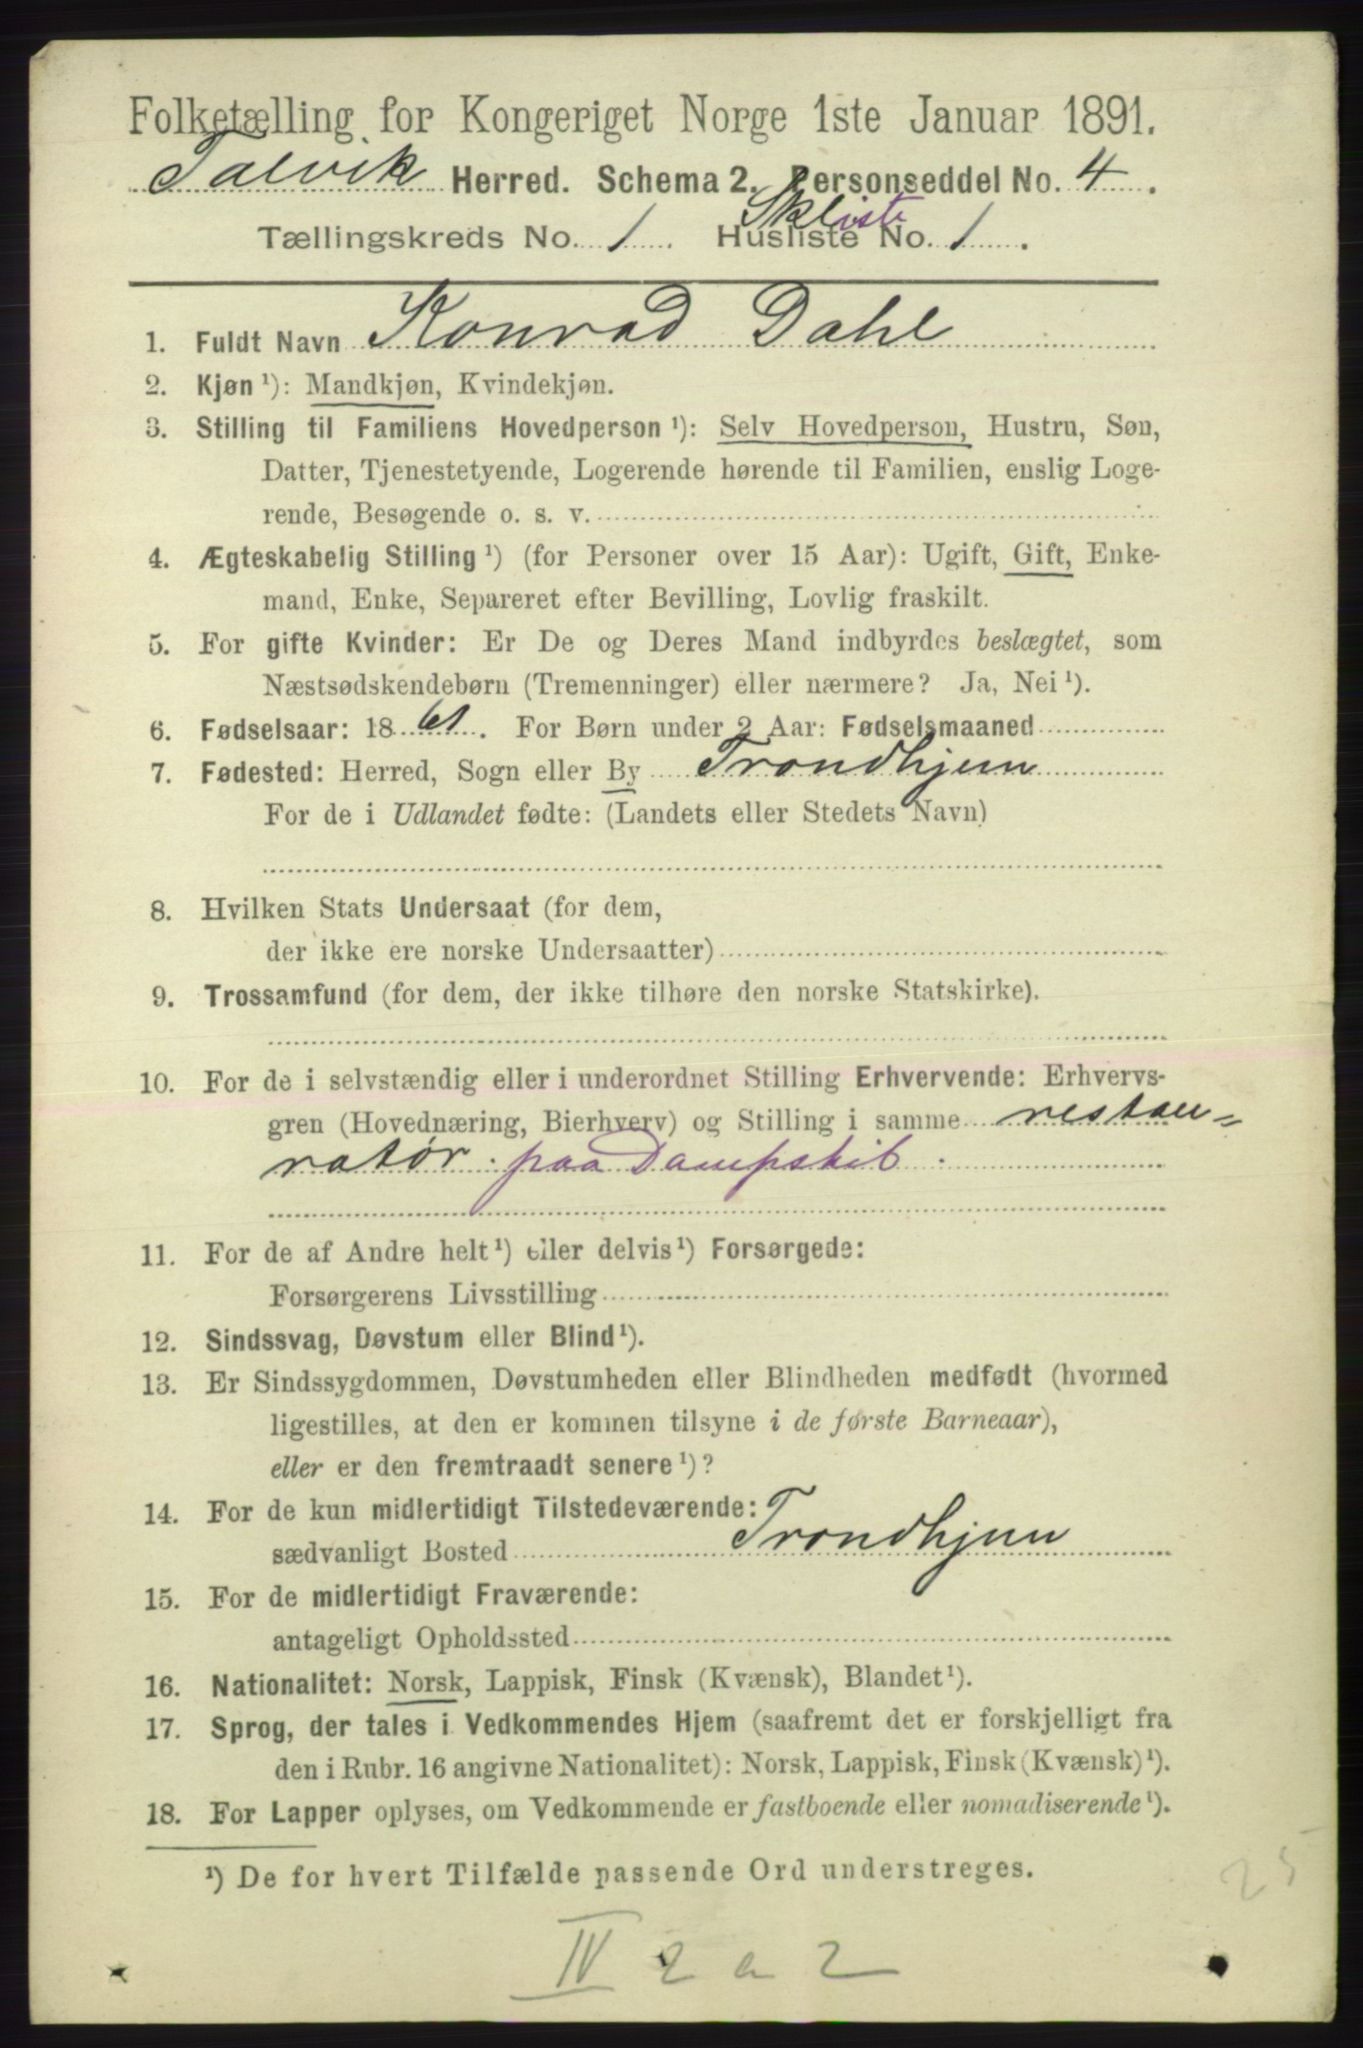 Folketælling for Kongeriget Norge 1ste Januar 1891.
Talvik Herred. Schema 2. Personseddel No. 4.
Skliste
Tællingskreds No. 1. Husliste No. 1.
1. Fuldt Navn Konrad Dahl
2. Kjøn ¹): Mandkjøn, Kvindekjøn.
3. Stilling til Familiens Hovedperson ¹): Selv Hovedperson, Hustru, Søn,
Datter, Tjenestetyende, Logerende hørende til Familien, enslig Loge-
rende, Besøgende o. s. v.
4. Ægteskabelig Stilling ¹) (for Personer over 15 Aar): Ugift, Gift, Enke-
mand, Enke, Separeret efter Bevilling, Lovlig fraskilt.
5. For gifte Kvinder: Er De og Deres Mand indbyrdes beslægtet, som
Næstsødskendebørn (Tremenninger) eller nærmere? Ja, Nei ¹).
6. Fødselsaar: 1861. For Børn under 2 Aar: Fødselsmaaned
7. Fødested: Herred, Sogn eller By Trondhjem
For de i Udlandet fødte: (Landets eller Stedets Navn)
8. Hvilken Stats Undersaat (for dem,
der ikke ere norske Undersaatter)
9. Trossamfund (for dem, der ikke tilhøre den norske Statskirke).
10. For de i selvstændig eller i underordnet Stilling Erhvervende: Erhvervs-
gren (Hovednæring, Bierhverv) og Stilling i samme restau=
ratør. paa Dampskib.
11. For de af Andre helt ¹) eller delvis ¹) Forsørgede:
Forsørgerens Livsstilling
12. Sindssvag, Døvstum eller Blind ¹).
13. Er Sindssygdommen, Døvstumheden eller Blindheden medfødt (hvormed
ligestilles, at den er kommen tilsyne i de første Barneaar),
eller er den fremtraadt senere ¹)?
14. For de kun midlertidigt Tilstedeværende:
sædvanligt Bosted Trondhjem
15. For de midlertidigt Fraværende:
antageligt Opholdssted
16. Nationalitet: Norsk, Lappisk, Finsk (Kvænsk), Blandet ¹).
17. Sprog, der tales i Vedkommendes Hjem (saafremt det er forskjelligt fra
den i Rubr. 16 angivne Nationalitet): Norsk, Lappisk, Finsk (Kvænsk) ¹).
18. For Lapper oplyses, om Vedkommende er fastboende eller nomadiserende ¹).
¹) De for hvert Tilfælde passende Ord understreges.
25
IV 2 a 2